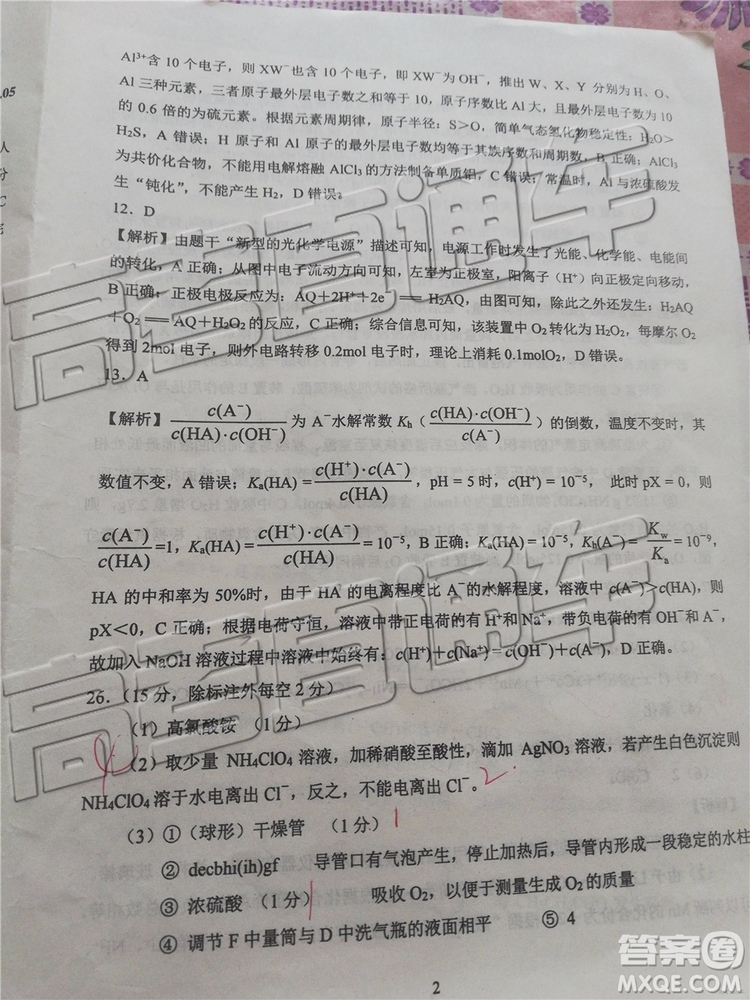 Al³⁺含 10 个电子，则 XW⁻也含 10 个电子，即 XW⁻为 OH⁻，推出 W、X、Y 分别为 H、O、
.05
Al 三种元素，三者原子最外层电子数之和等于 10，原子序数比 Al 大，且最外层电子数为 10
的 0.6 倍的为硫元素。根据元素周期律，原子半径：S＞O，简单气态氢化物稳定性：H₂O＞
H₂S，A 错误；H 原子和 Al 原子的最外层电子数均等于其族序数和周期数，B 正确；AlCl₃
为共价化合物，不能用电解熔融 AlCl₃ 的方法制备单质铝，C 错误；常温时，Al 与浓硫酸发
生“钝化”，不能产生 H₂，D 错误。
12．D
【解析】由题干“新型的光化学电源”描述可知，电源工作时发生了光能、化学能、电能间
的转化，A 正确；从图中电子流动方向可知，左室为正极室，阳离子（H⁺）向正极定向移动，
B 正确；正极电极反应为：AQ＋2H⁺＋2e⁻══H₂AQ，由图可知，除此之外还发生：H₂AQ
＋O₂══AQ＋H₂O₂ 的反应，C 正确；综合信息可知，该装置中 O₂ 转化为 H₂O₂，每摩尔 O₂
得到 2mol 电子，则外电路转移 0.2mol 电子时，理论上消耗 0.1molO₂，D 错误。
13．A
【解析】c(A⁻)/c(HA)·c(OH⁻) 为 A⁻水解常数 Kh（c(HA)·c(OH⁻)/c(A⁻)）的倒数，温度不变时，其
数值不变，A 错误；Ka(HA)＝c(H⁺)·c(A⁻)/c(HA)，pH＝5 时，c(H⁺)＝10⁻⁵， 此时 pX＝0，则
c(A⁻)/c(HA)=1，Ka(HA)＝c(H⁺)·c(A⁻)/c(HA)＝10⁻⁵，B 正确；Ka(HA)＝10⁻⁵，Kh(A⁻)＝Kw/Ka＝10⁻⁹，
HA 的中和率为 50%时，由于 HA 的电离程度比 A⁻的水解程度，溶液中 c(A⁻)>c(HA)，则
pX＜0，C 正确；根据电荷守恒，溶液中带正电荷的有 H⁺和 Na⁺，带负电荷的有 OH⁻和 A⁻，
故加入 NaOH 溶液过程中溶液中始终有：c(H⁺)＋c(Na⁺)＝c(OH⁻)＋c(A⁻)，D 正确。
26．（15 分，除标注外每空 2 分）
（1）高氯酸铵 （1 分）
（2）取少量 NH₄ClO₄ 溶液，加稀硝酸至酸性，滴加 AgNO₃ 溶液，若产生白色沉淀则
NH₄ClO₄ 溶于水电离出 Cl⁻，反之，不能电离出 Cl⁻。 2
（3）①（球形）干燥管 （1 分） 1
② decbhi(ih)gf 导管口有气泡产生，停止加热后，导管内形成一段稳定的水柱
③ 浓硫酸（1 分） 1 吸收 O₂，以便于测量生成 O₂ 的质量
④ 调节 F 中量筒与 D 中洗气瓶的液面相平 ⑤ 4
2
高考直通车
高考直通车
答案圈
MXQE.COM